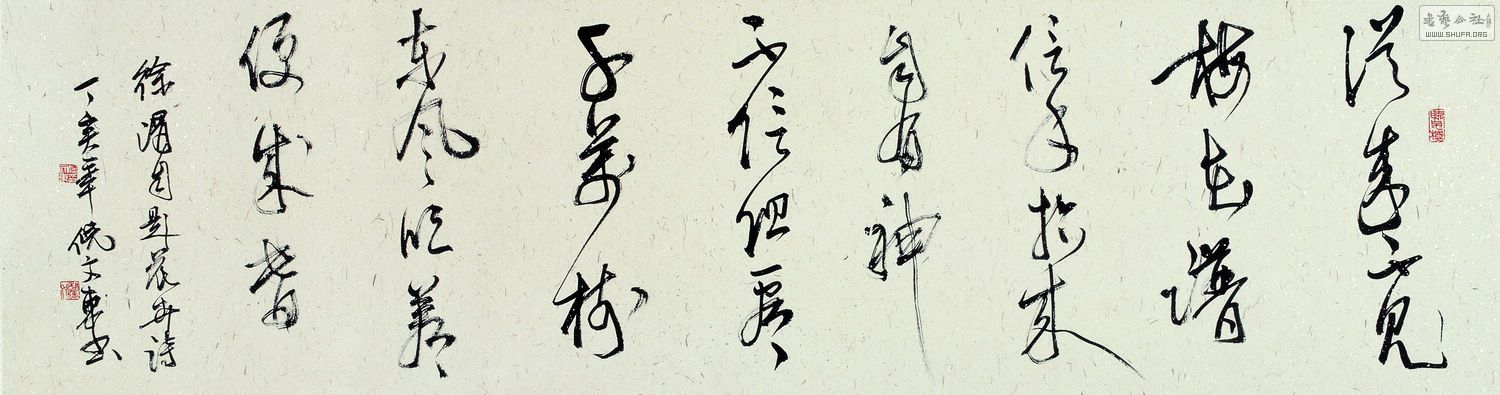 從來不見
梅花譜
信手拈來
自有神
不信但看
千萬樹
東風吹着
便成春
徐渭自題花卉詩
丁亥年倪文東書
書藝公社
WWW.SHUFA.ORG